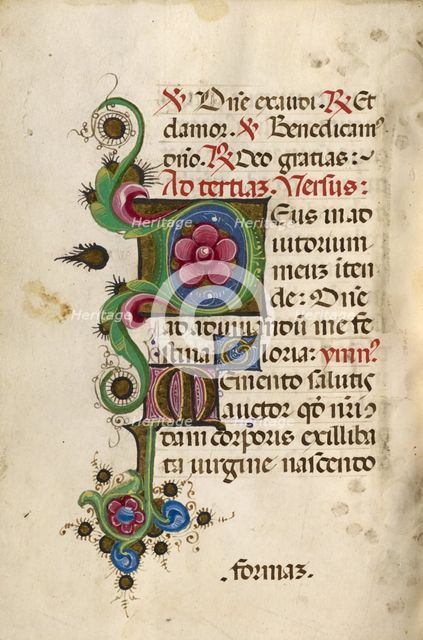 ℣ Dn̄e exaudi. ℟ Et
clamor. ℣ Benedicam⁹
dn̄o. ℟ Deo gratias:~
Ad tertiaz. Versus:
Deus in ad
iutorium
meuz ītēn
de: Dn̄e
ad adiuuandū me fe
stina Gloria: ymn⁹
Memento salutis
auctor qđ nr̄i
dam corporis exilliba
ta uirgine nascendo
.formaz.
heritage
Heritage
Heritage
heritage
Heritage
Heritage